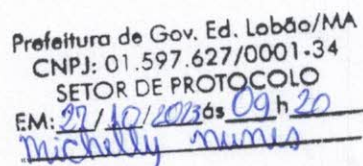 Prefeitura de Gov. Ed. Lobão/MA
CNPJ: 01.597.627/0001-34
SETOR DE PROTOCOLO
EM: 27/10/2023 às 09 h 20
Michelly Nunes